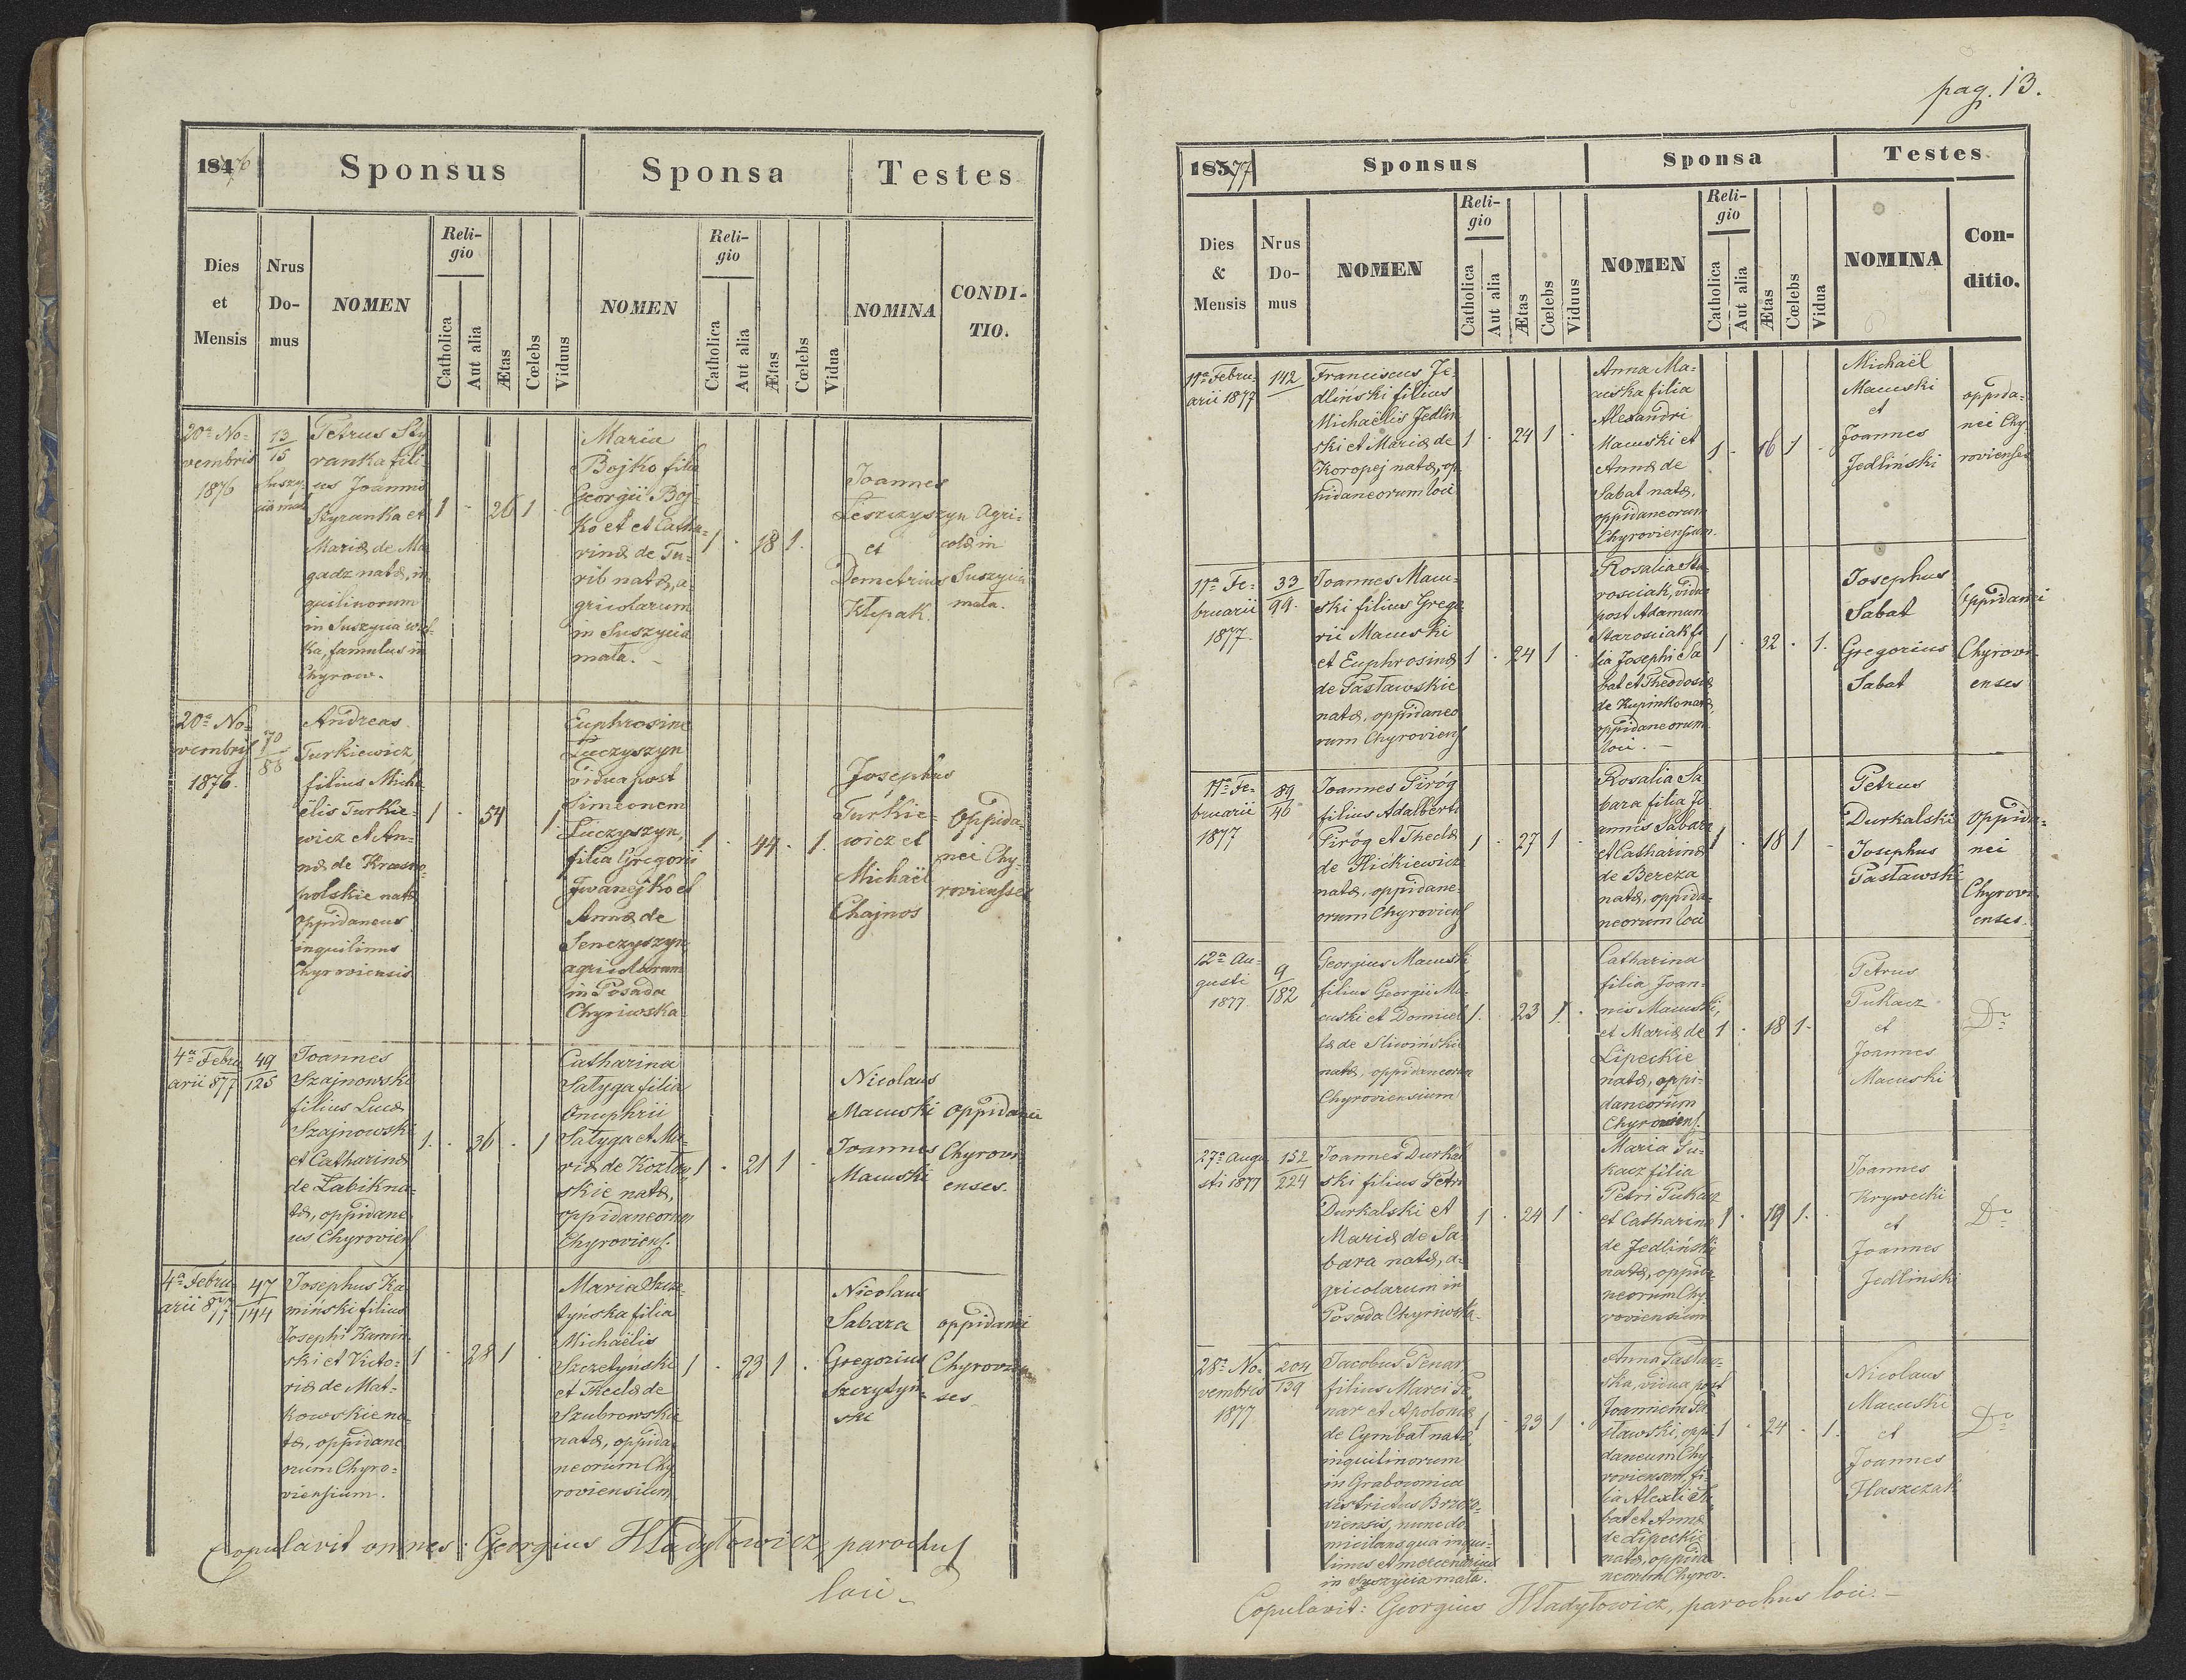 pag. 13.
1876
Sponsus
Sponsa
Testes
Dies
et
Mensis
Nrus
Do-
mus
NOMEN
Reli-
gio
Catholica
Aut alia
Ætas
Cœlebs
Viduus
NOMEN
Reli-
gio
Catholica
Aut alia
Ætas
Cœlebs
Vidua
NOMINA
CONDI-
TIO.
20a No-
vembris
1876
13
15
Petrus Sty
ranka fili-
us Joannis
Styranka et
Mariæ de Ma
gadz natæ, in
quilinorum
in Suszyca wiel-
ka, famulus in
Chyrow.
1 - 26 1
Maria
Bojko filia
Georgii Boj-
ko et et Catha-
rinæ de Tu-
rib natæ, a-
gricolarum
in Suszycia
mała. -
1 - 18 1.
Joannes
Leszczyszyn
et
Demetrius
Klepak.
Agri-
colæ in
Suszycia
mała.
20a No-
vembris
1876.
70
88
Andreas
Turkiewicz,
filius Micha
ëlis Turkie-
wicz et An-
næ de Krasno-
polskie natæ
Oppidaneus
inquilinus
Chyroviensis
1 - 54 1
Euphrosine
Łuczyszyn
vidua post
Simeonem
Łuczyszyn,
filia Gregorii
Iwanejko et
Annæ de
Senczyszyn
agricolarum
in Posada
Chyriwska
1 - 44 - 1.
Josephus
Turkie-
wicz et
Michaël
Chajnos
Oppida-
nei Chy-
rovienses
4a Febru
arii 877
49
125
Joannes
Szajnowski
filius Lucæ
Szajnowski
et Catharinæ
de Łabik na-
tæ, oppidane
us Chyroviens
1. - 36 - 1
Catharina
Sałyga filia
Onuphrii
Sałyga et Ma-
riæ de Kozłow-
skie natæ,
oppidaneorum
Chyroviens.
1 - 21 1 -
Nicolaus
Macuski
Joannes
Macuski
Oppidanei
Chyrovi
enses.
4a Febru
arii 877
47
144
Josephus Ka
miński filius
Josephi Kamin
ski et Victo-
riæ de Mat-
kowskie na-
tæ, oppidane
orum Chyro-
viensium.
1 - 28 1 -
Maria Szcze-
tyńska filia
Michaëlis
Szczetyński
et Theclæ de
Szubrowskie
natæ, oppida
neorum Chy
roviensium
1 - 23 1 -
Nicolaus
Sabara
Gregorius
Szczytyn-
ski
oppidanei
Chyrovien
ses
Copulavit omnes: Georgius Hładyłowicz, parochus
loci -
1877
Sponsus
Sponsa
Testes
Dies
&
Mensis
Nrus
Do-
mus
NOMEN
Reli-
gio
Catholica
Aut alia
Ætas
Cœlebs
Viduus
NOMEN
Reli-
gio
Catholica
Aut alia
Ætas
Cœlebs
Vidua
NOMINA
Con-
ditio.
11a Febru-
arii 1877
142
Franciscus Je-
dliński filius
Michaëlis Jedlin
ski et Mariæ de
Koropej natæ, op
pidaneorum loci
1 - 24 1 -
Anna Ma-
cuska filia
Alexandri
Macuski et
Annæ de
Sabat natæ,
oppidaneorum
Chyroviensium.
1 - 16 1 -
Michaël
Macuski
et
Joannes
Jedliński
oppida-
nei Chy-
rovienses
11a Fe-
bruarii
1877.
33
99.
Joannes Macu-
ski filius Grego
rii Macuski
et Euphrosinæ
de Pasławskie
natæ, oppidaneo
rum Chyroviens
1 - 24 1 -
Rosalia Sta-
rosciak, vidua
post Adamum
Starosciak fi
lia Josephi Sa
bat et Theodosiæ
de Kupinko natæ,
oppidaneorum
loci. -
1 - 32 - 1.
Josephus
Sabat
Gregorius
Sabat
Oppidanei
Chyrovi
enses
11a Fe-
bruarii
1877
89
46
Joannes Piróg
filius Adalberti
Piróg et Theclæ
de Hickiewicz
natæ, oppidane-
orum Chyroviens
1 - 27 1 -
Rosalia Sa
bara filia Jo
annis Sabara
et Catharinæ
de Bereza
natæ, oppida-
neorum loci
1 - 18 1 -
Petrus
Durkalski
Josephus
Pasławski
Oppida-
nei
Chyrovi
enses.
12a Au-
gusti
1877.
9
182
Georgius Macuski
filius Georgii Ma-
cuski et Domicel
læ de Sliwińskie
natæ, oppidaneorum
Chyroviensium
1. 23 1. -
Catharina
filia Joan-
nis Macuski,
et Mariæ de
Lipeckie
natæ, oppi-
daneorum
Chyroviens.
1 - 18 1 -
Petrus
Pukacz
et
Joannes
Macuski
Do
27a Augu
sti 1877
152
224
Joannes Durkal
ski filius Petri
Durkalski et
Mariæ de Sa-
bara natæ, a-
gricolarum in
Posada Chyriwska.
1 - 24 1 -
Maria Pu-
kacz filia
Petri Pukacz
et Catharinæ
de Jedlińskie
natæ, oppida-
neorum Chy-
roviensium
1 - 19 1. -
Joannes
Krywecki
et
Joannes
Jedlinski
Do
28a No-
vembris
1877
204
139
Jacobus Penar
filius Marci Pe
nar et Apoloniæ
de Cymbał natæ,
inquilinorum
in Grabownica
districtus Brzozo-
viensis, nunc do
micilans qua inqui-
linus et mercenarius
in Suszycia mała.
1 - 23 1 -
Anna Pasław-
ska, vidua post
Joannem Pa
sławski, oppi-
daneum Chy
roviensem, fi-
lia Alexii Sa
bat et Annæ
de Lipeckie
natæ, oppida
neorum Chyrov.
1 - 24 - 1.
Nicolaus
Macuski
et
Joannes
Haszczak
Do
Copulavit: Georgius Hładyłowicz, parochus loci. -